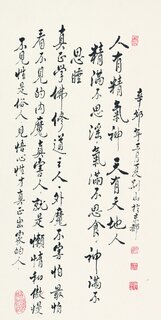 人有精氣神 天有天地人
精滿不思淫 氣滿不思食 神滿不
思睡
真正學佛修道之人 外魔不害怕 最怕
看不見的內魔 真害人 就是懶惰和傲慢
不見性是俗人 見悟心性才真正出家的人
辛卯年